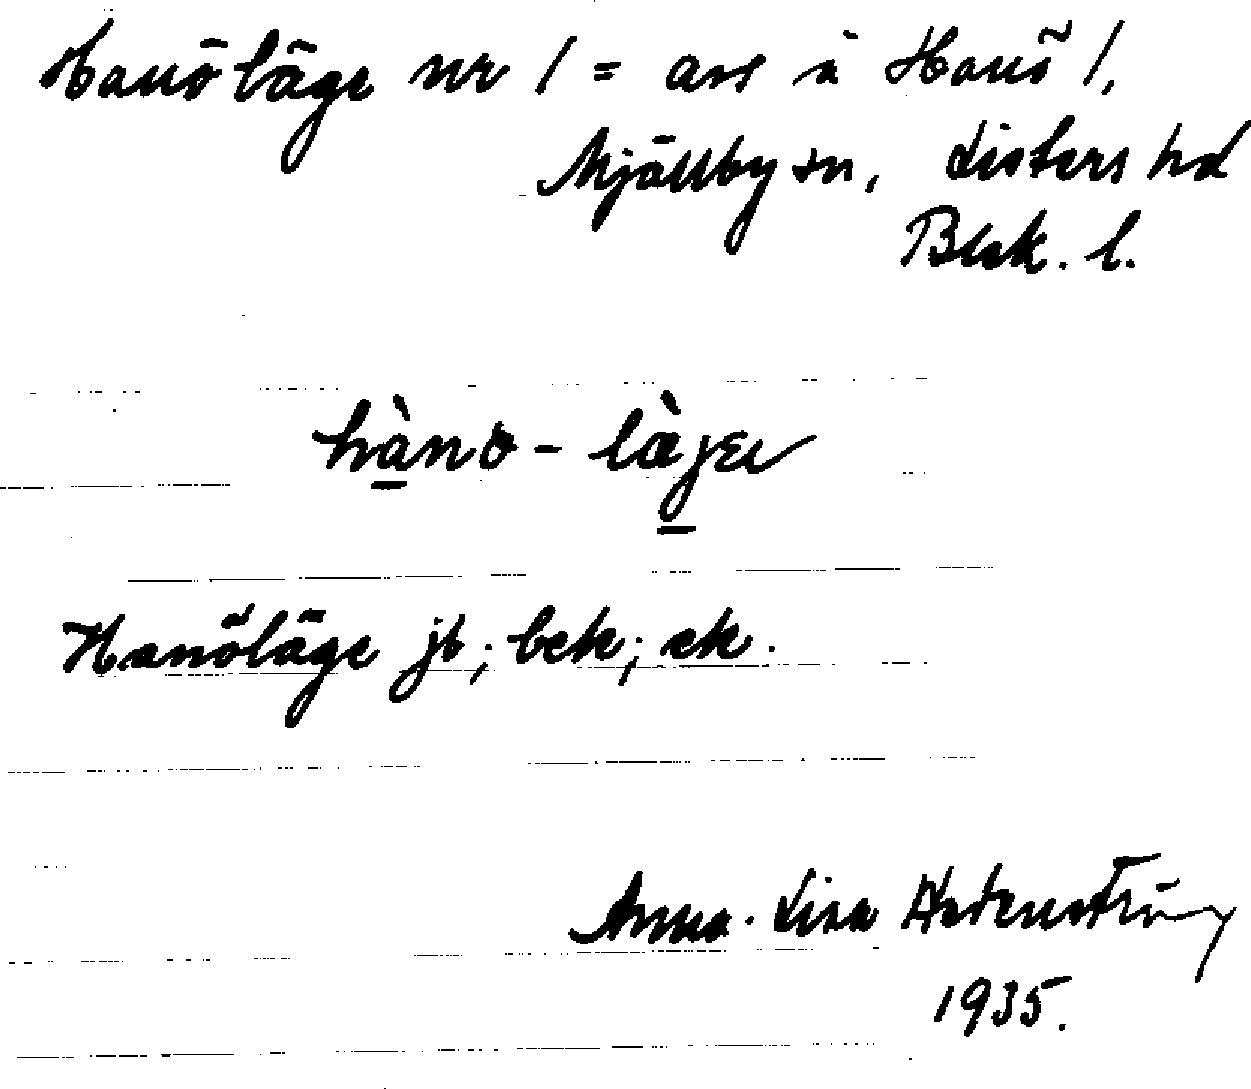 Hanöläge nr 1 = avs å Hanö 1,
Mjällby sn, Listers hd
Blek. l.
hànö - làjeı
Hanöläge jb; bek; ek.
Anna-Lisa Hedenström
1935.